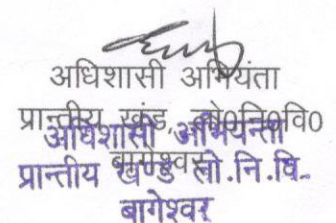 अधिशासी अभियंता
प्रान्तीय खंड, लो०नि०वि०
अधिशासी अभियन्ता
बागेश्वर
प्रान्तीय खण्ड लो.नि.वि.
बागेश्वर